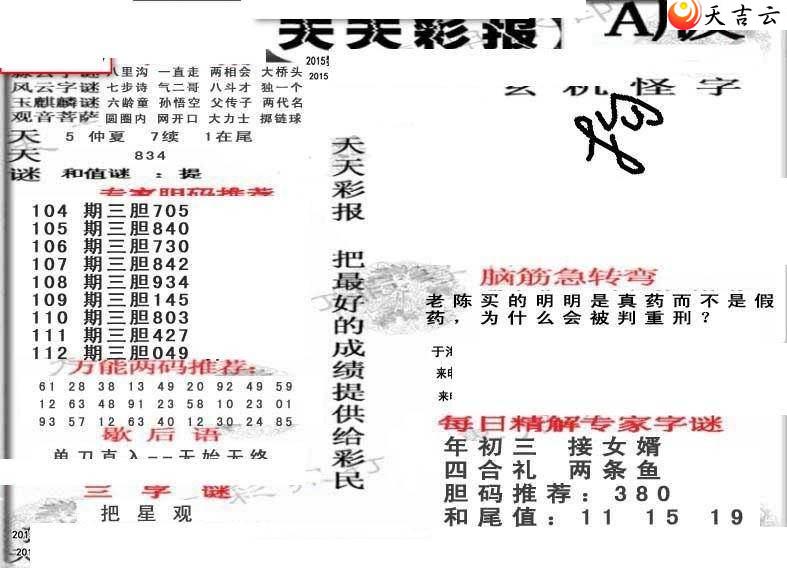 天吉云
【天天彩报】
2015
2015
八里沟 一直走 两相会 大桥头
风云字谜 七步诗 气二哥 八斗才 独一个
玉麒麟谜 六龄童 孙悟空 父传子 两代名
观音菩萨 圆圈内 网开口 大力士 掷链球
天 5 仲夏 7续 1在尾
天 834
谜 和值谜 ：提
专家胆码推荐
104 期三胆705
105 期三胆840
106 期三胆730
107 期三胆842
108 期三胆934
109 期三胆145
110 期三胆803
111 期三胆427
112 期三胆049
万能两码推荐:
61 28 38 13 49 20 92 49 59
12 63 48 91 23 58 10 23 01
93 57 12 63 40 12 30 24 85
歇后语
单刀直入--无始无终
三字谜
把星观
天天彩报 把最好的成绩提供给彩民
玄机怪字
脑筋急转弯
老陈买的明明是真药而不是假
药，为什么会被判重刑？
每日精解专家字谜
年初三 接女婿
四合礼 两条鱼
胆码推荐：380
和尾值：11 15 19